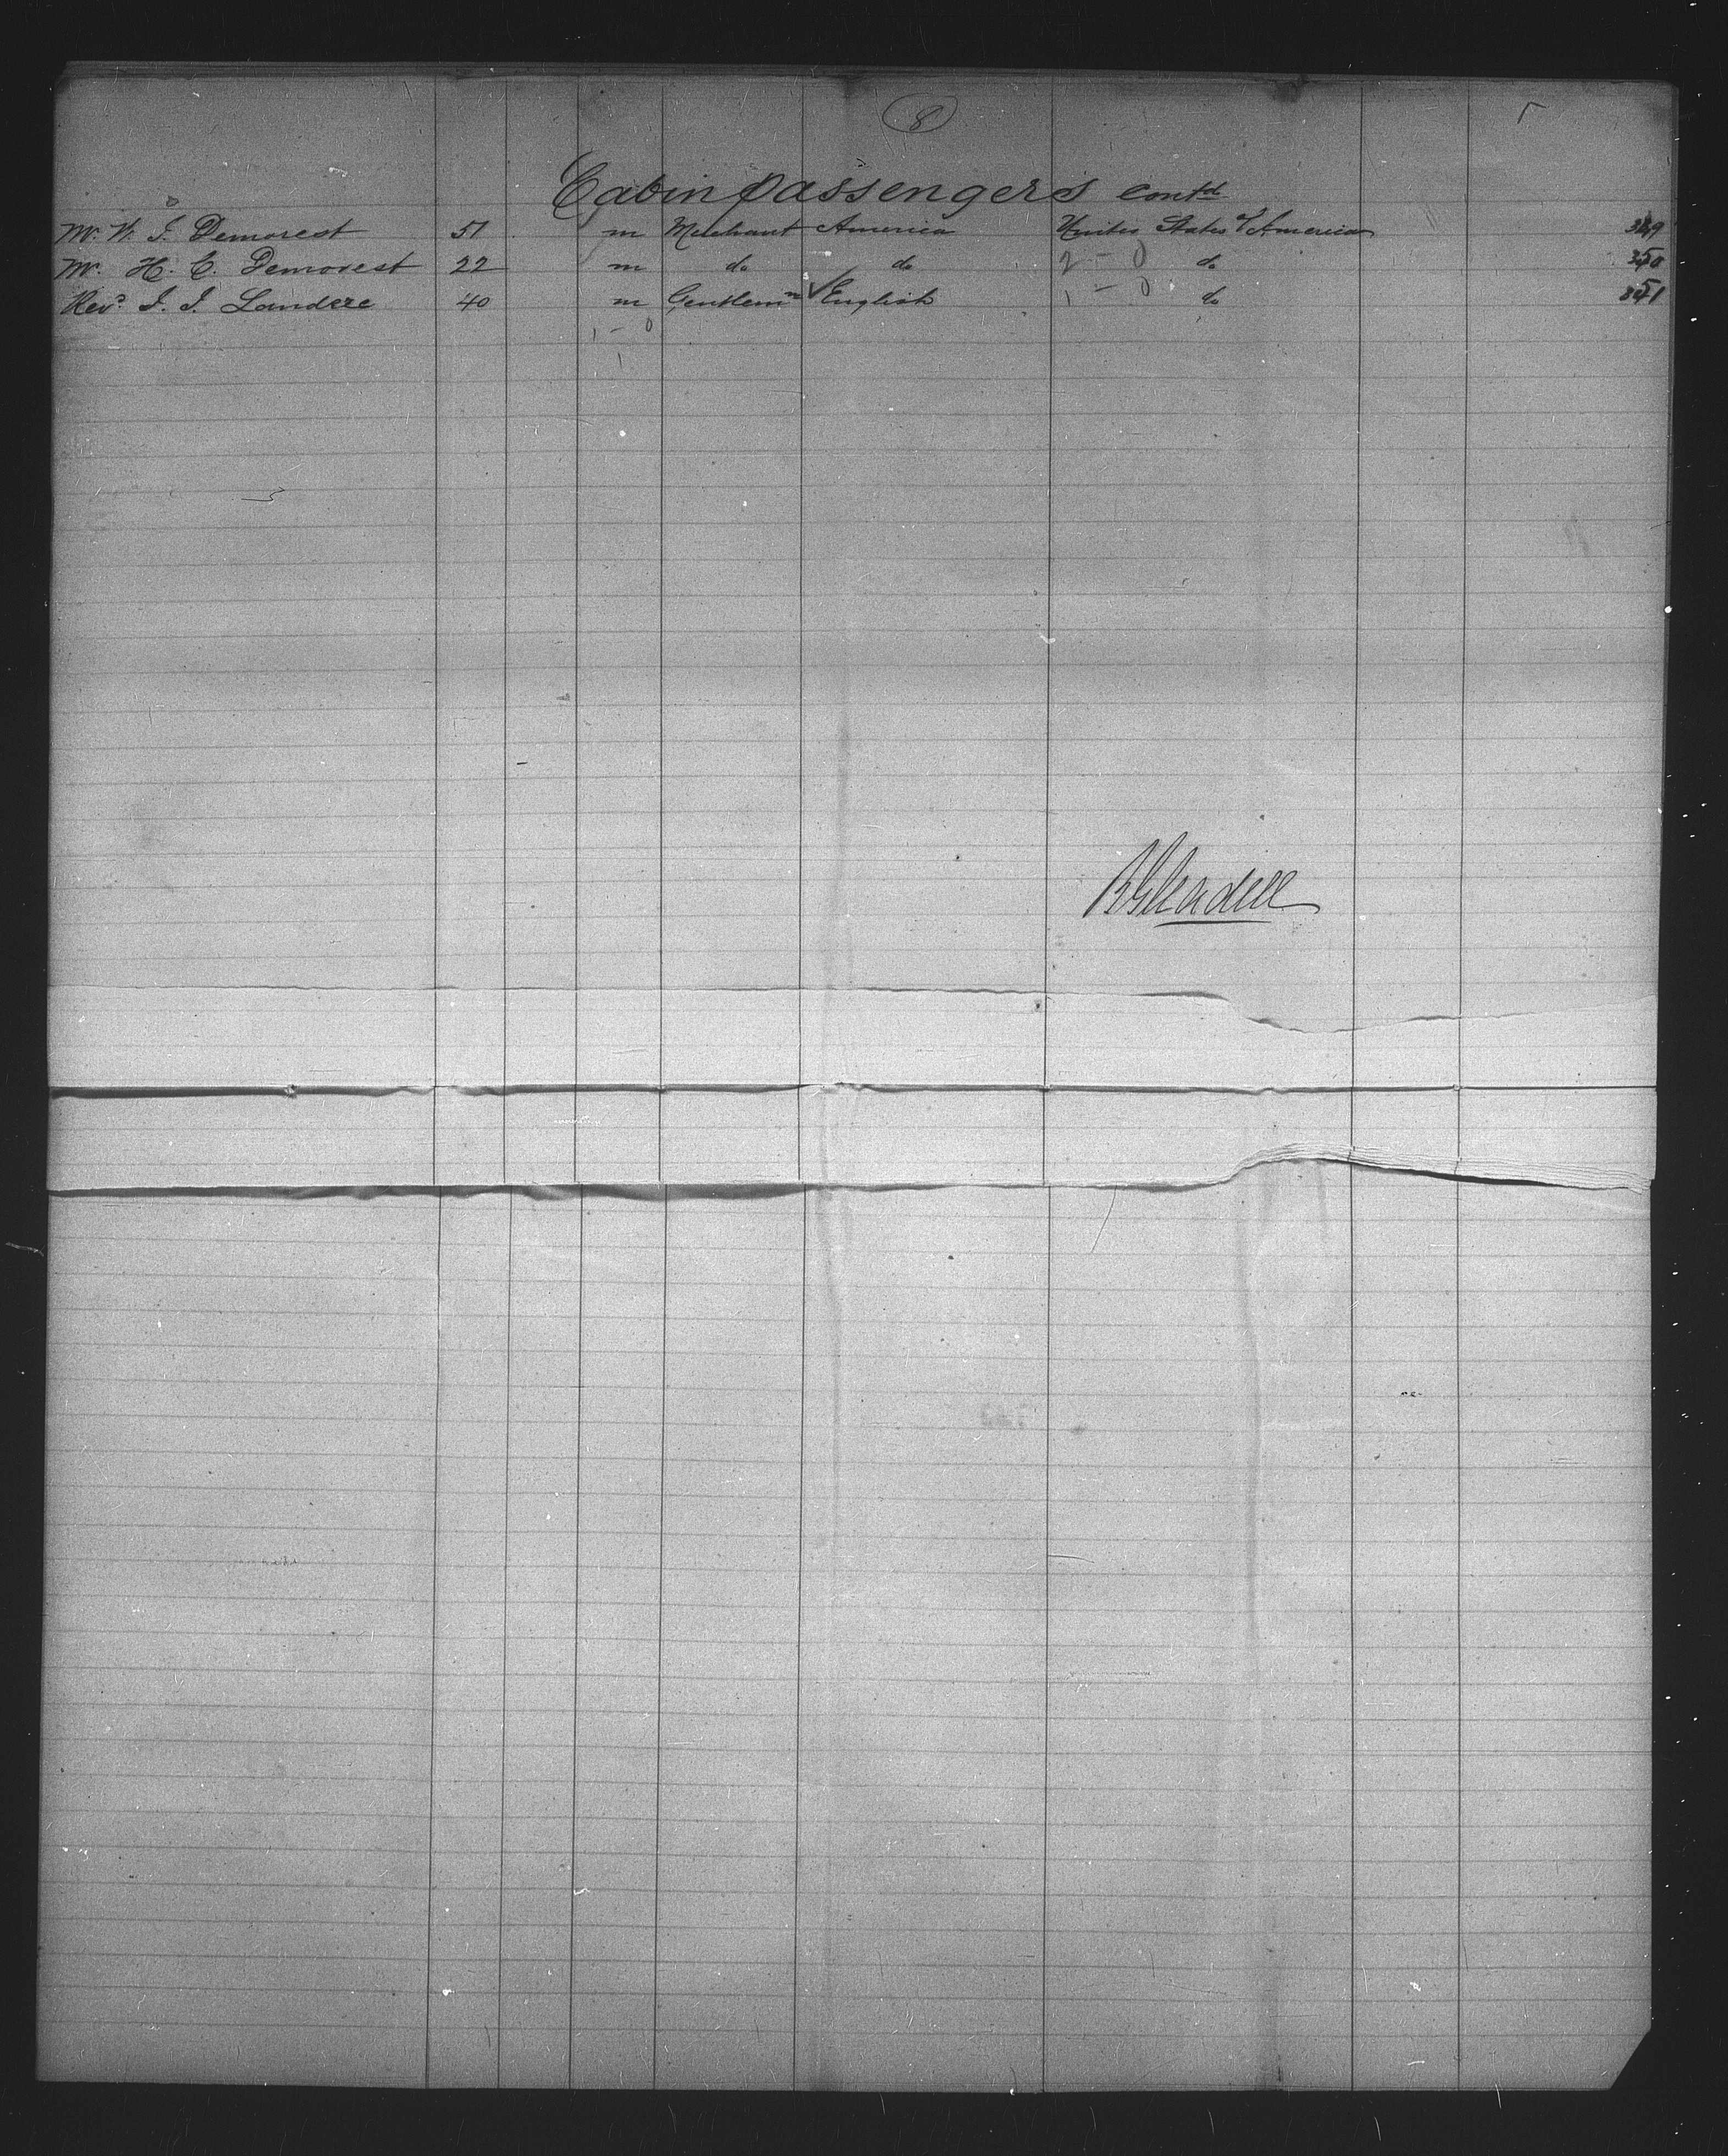 8
Cabin passengers contd
Mr. W. J. Demorest 51 m Merchant America United States of America 349
Mr. H. C. Demorest 22 m do do 2 - 0 do 350
Revd. J. J. 40 m Gentlemn English 1 - 0 do 351
1 - 0
1